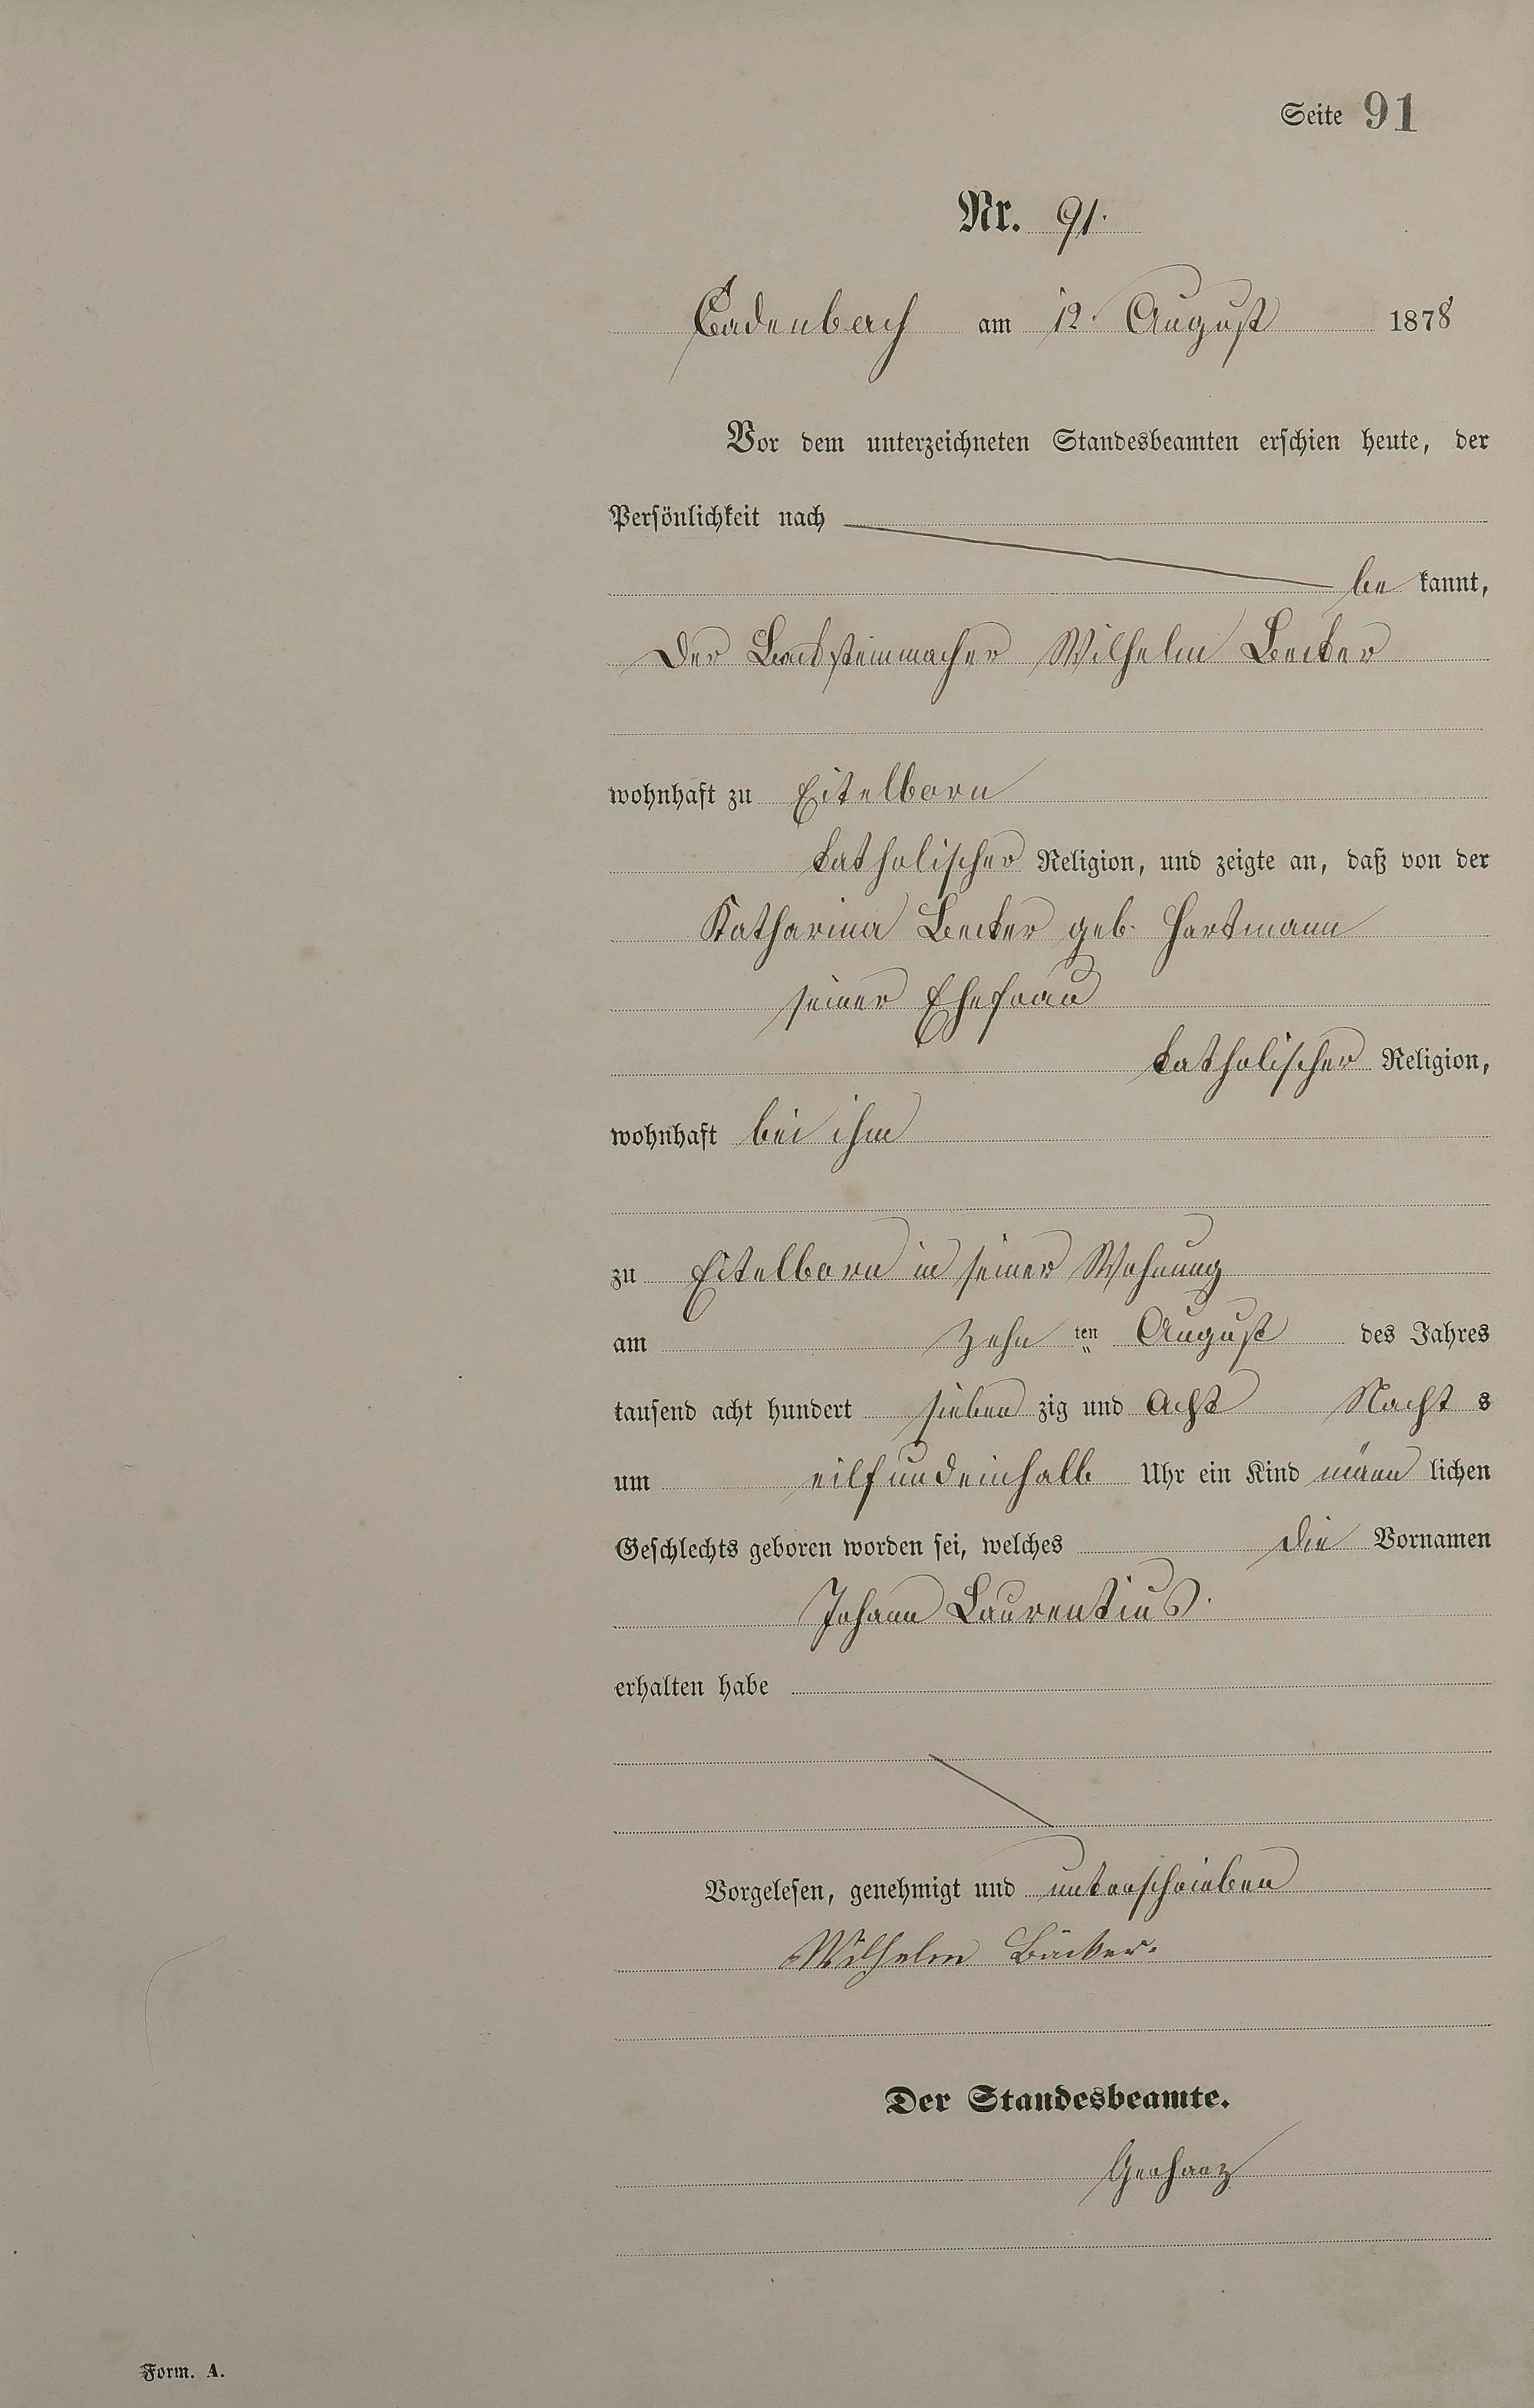 Seite 91
Nr. 91.
Cadenbach am 12. August 1878
Vor dem unterzeichneten Standesbeamten erschien heute, der
Persönlichkeit nach
be kannt,
Der Backsteinmacher Wilhelm Becker
wohnhaft zu Eitelborn
katholischer Religion, und zeigte an, daß von der
Katharina Becker geb. Hartmann
seiner Ehefrau
katholischer Religion,
wohnhaft bei ihm
zu Eitelborn in seiner Wohnung
am zehn ten August des Jahres
tausend acht hundert sieben zig und Acht Nacht s
um eilfundeinhalb Uhr ein Kind männ lichen
Geschlechts geboren worden sei, welches die Vornamen
Johann Laurentius.
erhalten habe
Vorgelesen, genehmigt und unterschrieben
Wilhelm Bäcker.
Der Standesbeamte.
Gerharz
Form. A.